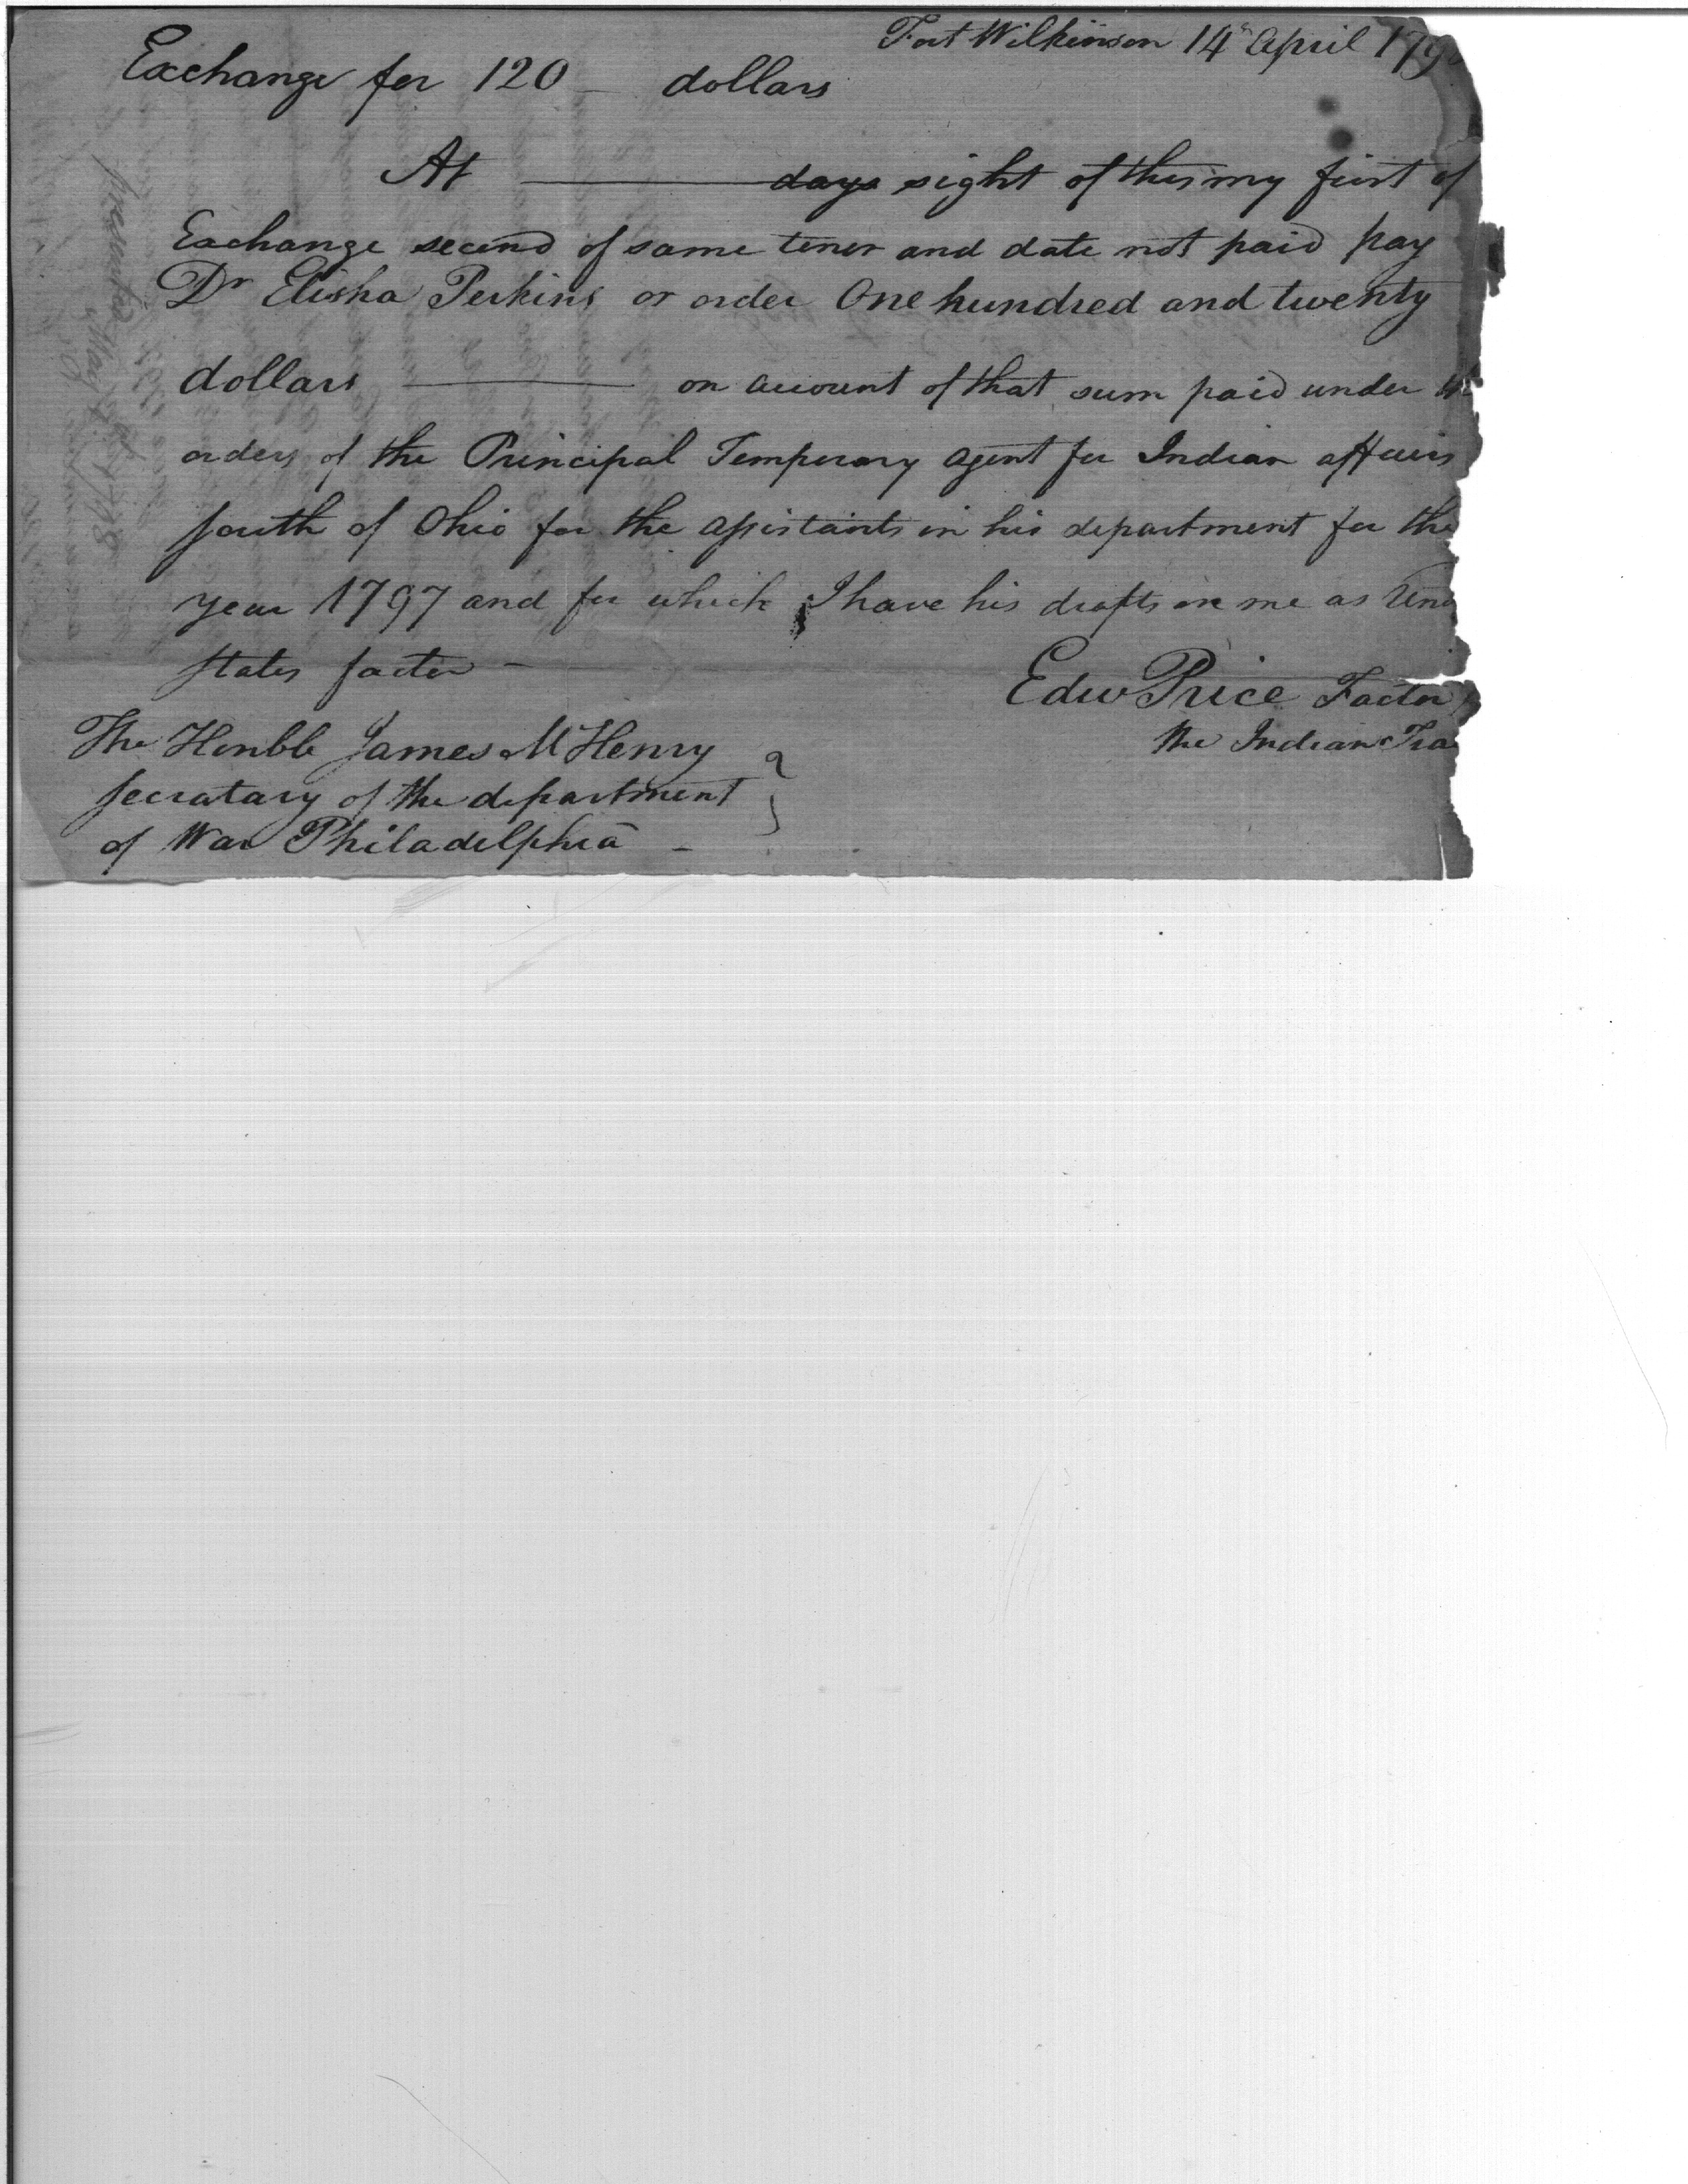 Fort Wilkinson 14th April 179
Exchange for 120 – dollars
At ——— days sight of this my first of
Exchange second of same tenor and date not paid pay
Dr Elisha Perkins or order One hundred and twenty
dollars ——— on account of that sum paid under th
orders of the Principal Temporary agent for Indian affairs
south of Ohio for the assistants in his department for the
year 1797 and for which I have his drafts on me as Uni
states factor –
Edw Price Factor
the Indian Tra
The Honble James McHenry
secratary of the department
of War Philadelphia –
presented
May 1798